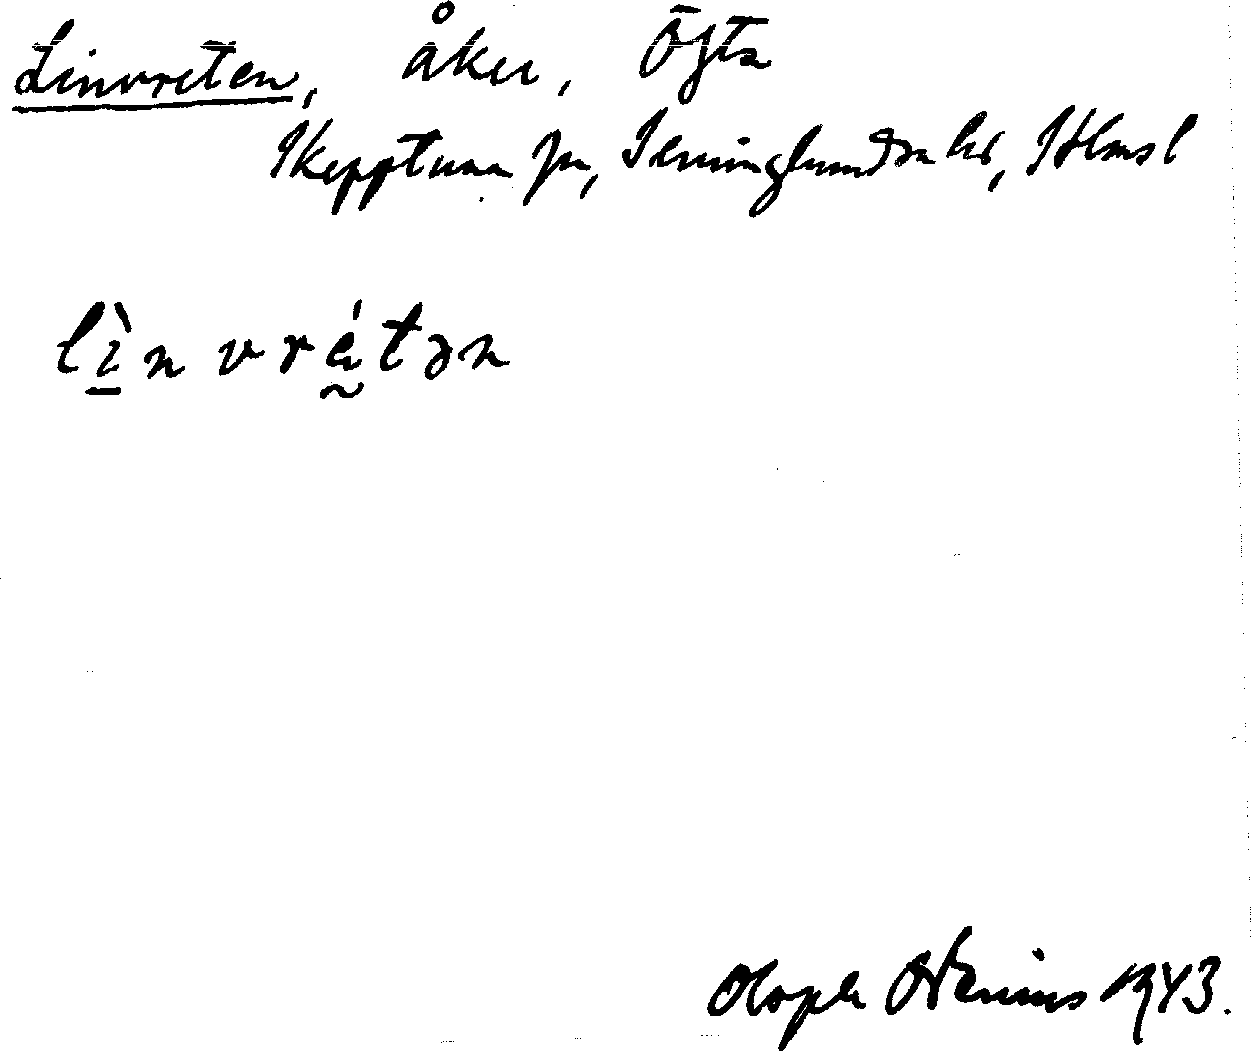 Linvreten, åker, Ö
Skepptuna sn, Seminghundra hd, Sthms l
lìnvrétən
Oloph Odenius 1943.